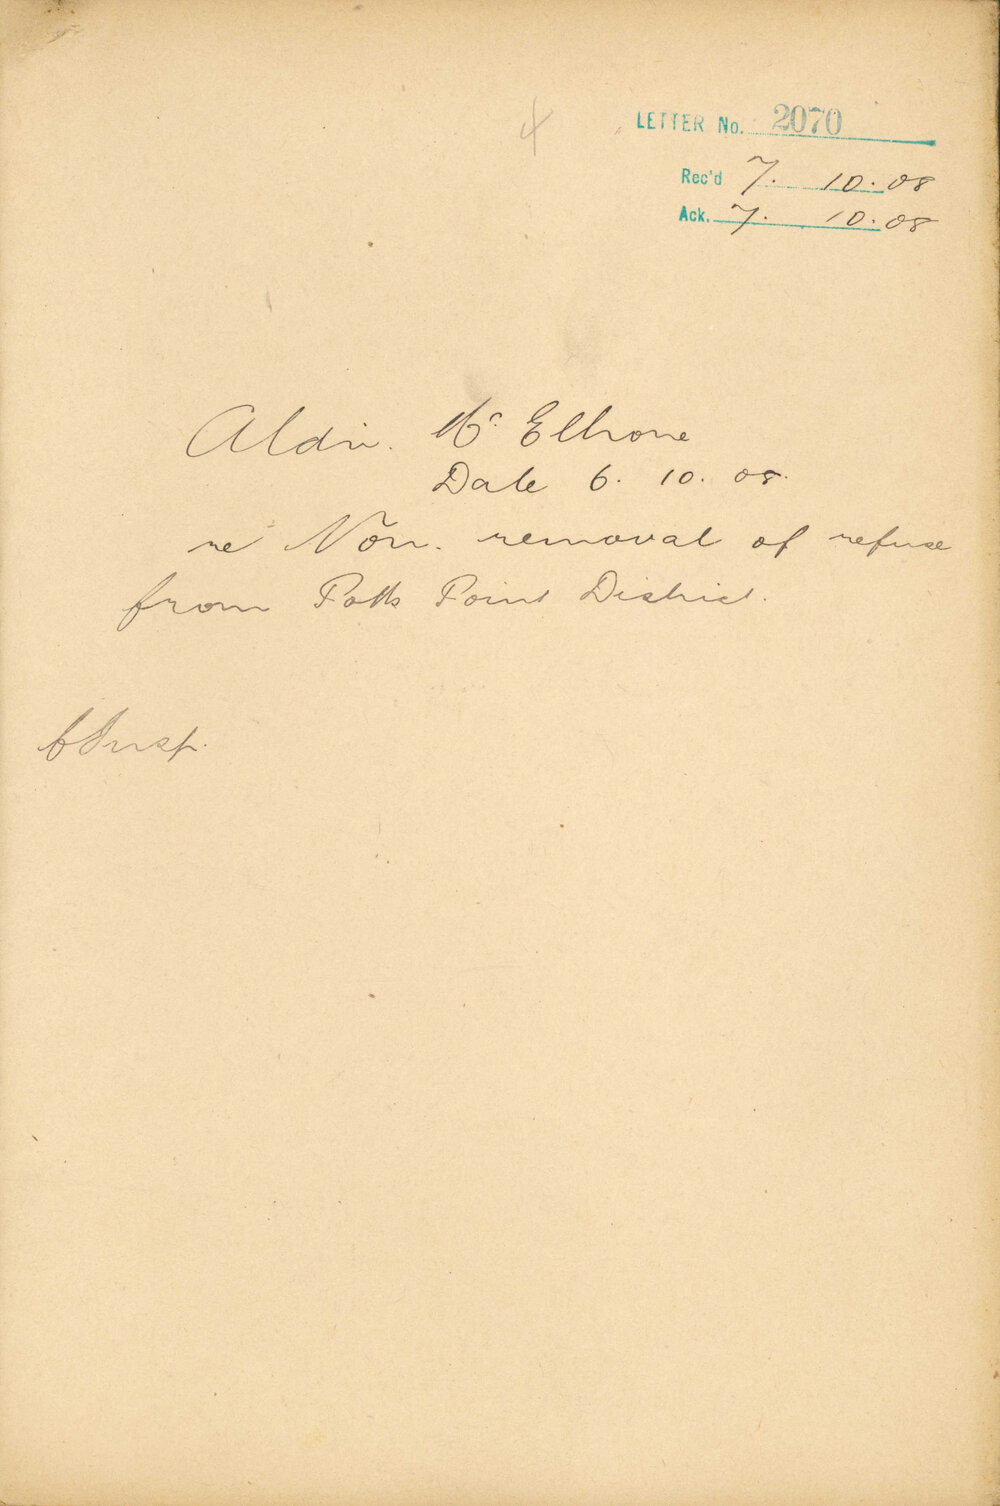 4
LETTER No. 2070
Rec'd 7. 10. 08
Ack. 7. 10. 08
Aldn. Mc Elhone
Date 6. 10. 08.
re Non. removal of refuse
from Potts Point District.
C Insp.